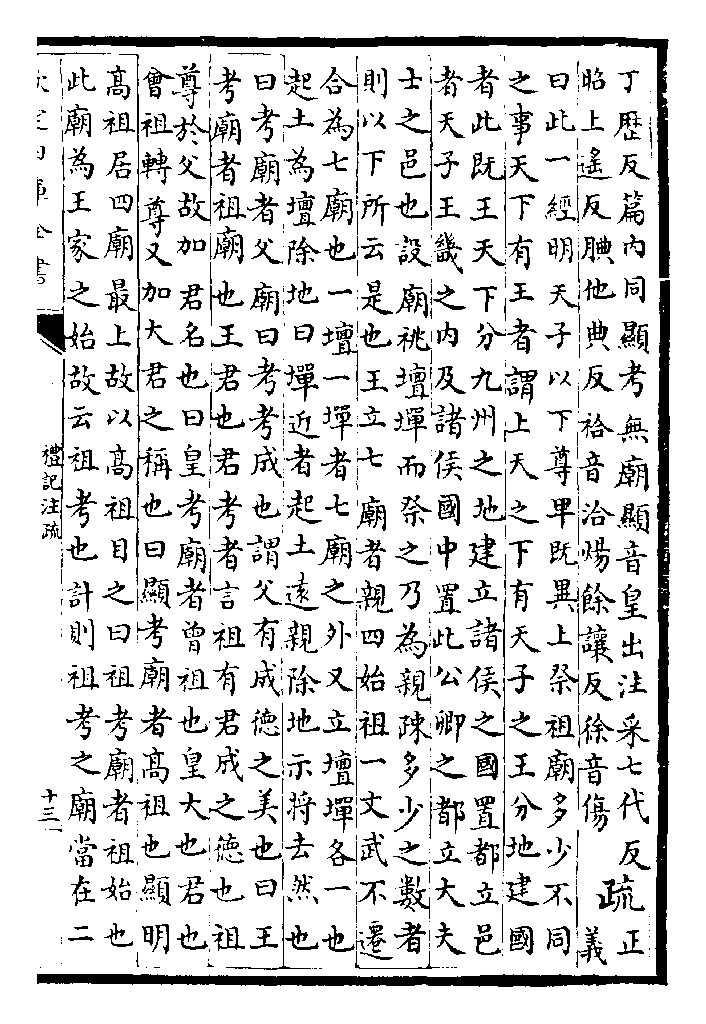 丁歴反篇内同顯考無廟顯音皇出注采七代反
昭上遥反腆他典反祫音洽煬餘讓反徐音傷
疏
正
義
曰此一經明天子以下尊卑既異上祭祖廟多少不同
之事天下有王者謂上天之下有天子之王分地建國
者此既王天下分九州之地建立諸侯之國置都立邑
者天子王畿之内及諸侯國中置此公卿之都立大夫
士之邑也設廟祧壇墠而祭之乃為親疎多少之數者
則以下所云是也王立七廟者親四始祖一文武不遷
合為七廟也一壇一墠者七廟之外又立壇墠各一也
起土為壇除地曰墠近者起土逺親除地示将去然也
曰考廟者父廟曰考考成也謂父有成德之美也曰王
考廟者祖廟也王君也君考者言祖有君成之德也祖
尊於父故加君名也曰皇考廟者曾祖也皇大也君也
曾祖轉尊又加大君之稱也曰顯考廟者高祖也顯明
高祖居四廟最上故以高祖目之曰祖考廟者祖始也
此廟為王家之始故云祖考也計則祖考之廟當在二
欽定四庫全書
禮記注疏
十三